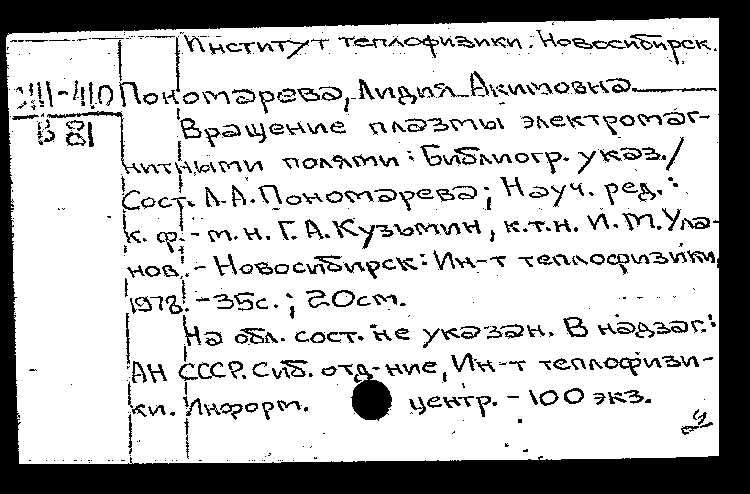 Институт теплофизики. Новосибирск.
Пономарева, Лидия Акимовна
В 81
Вращение плазмы электромаг-
нитными полями: Библиогр. указ./
Сост. Л.А. Пономарева; Науч. ред.:
к. ф.-м. н. Г. А. Кузьмин, к.т.н. И. М. Ула-
нов. - Новосибирск: Ин-т теплофизики,
1978. - 35с.; 20см.
На обл. сост. не указан. В надзаг.:
АН СССР. Сиб. отд-ние, Ин-т теплофизи-
ки. Информ. центр. - 100 экз.